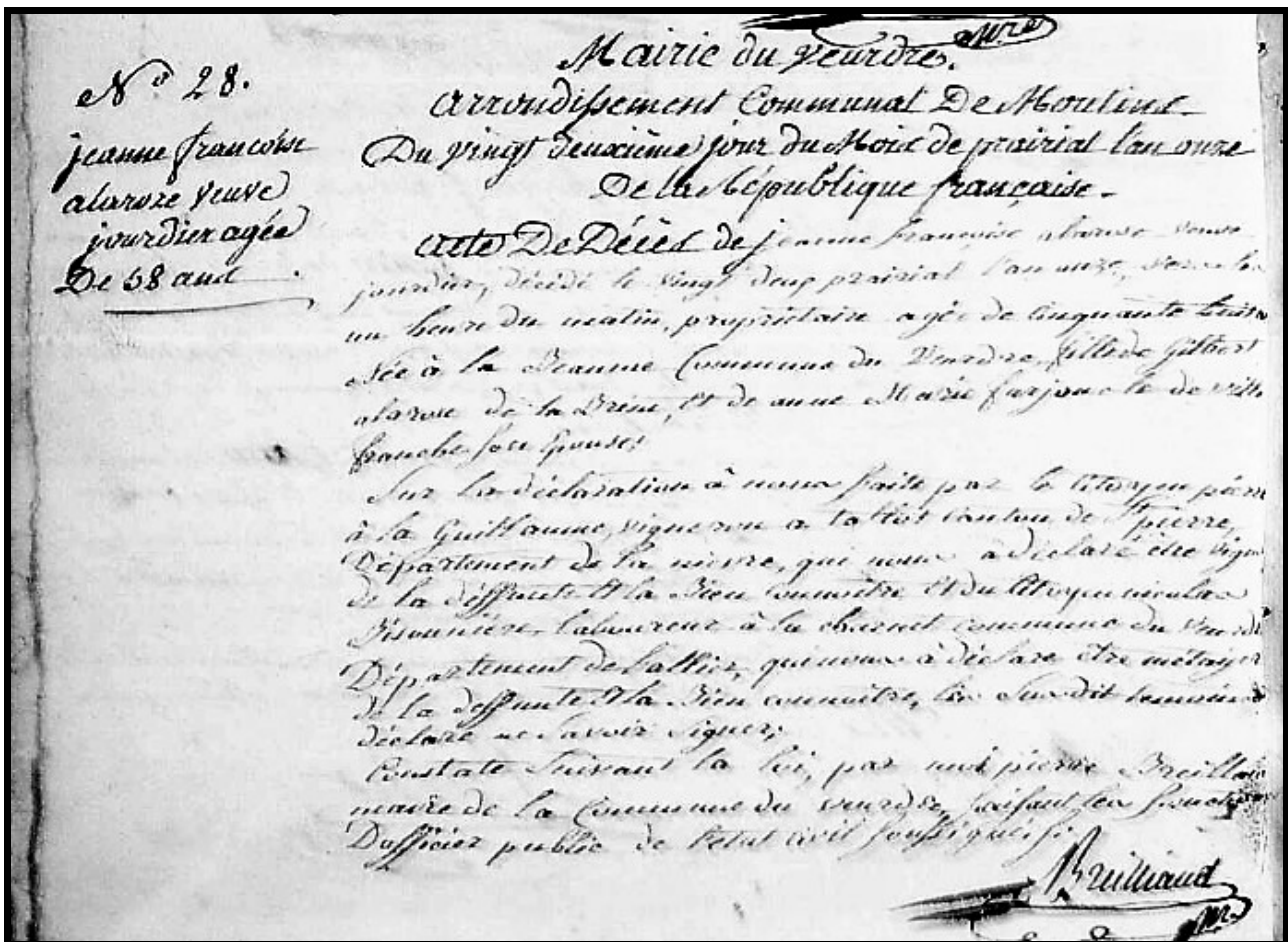 Mairie du veurdre.
N.º 28.
jeanne francoise
alaroze veuve
jourdier agée
De 58 ans
arrondissement Communal De Moulins.
Du vingt deuxième jour du Mois de prairial l'an onze
De la République française.
acte De Décès de jeanne françoise alarose veuve
jourdier, décédé le vingt deux prairial l'an onze, vers les
un heure du matin, propriétaire agée de Cinquante huit
née à la Commune du Veurdre, fille de Gilbert
alarose de la Brene, et de anne Marie farjonele de ville
franche son épouse,
Sur la déclaration à nous faite par le Citoyen pierre
à la Guillaume, vigneron a canton de St pierre,
Département de la nievre, qui nous a déclaré être vigne
de la deffunte et la Bien connoitre et du Citoyen nicolas
laboureur à la commune du Veurdre
Département de Lallier, qui nous à déclaré être métayer
de la deffunte et la Bien connoitre, les Susdit temoins
déclaré ne Savoir Signer;
Constaté Suivant la loi, par moi pierre Breilliaud
maire de la Commune du veurdre, faisant les fonctions
Dofficier public de l'etat civil soussigné
Breilliaud